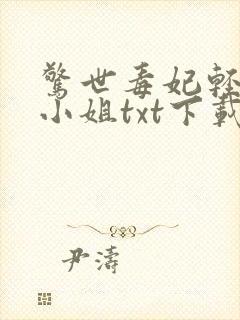 驚世毒妃輕
小姐txt下載
尹濤